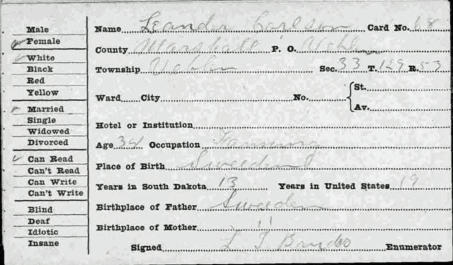 Male
Female
White
Black
Red
Yellow
Married
Single
Widowed
Divorced
Can Read
Can't Read
Can Write
Can't Write
Blind
Deaf
Idiotic
Insane
Name Leander Carlson Card No. 68
County Marshall P. O.
Township
Sec. 33 T. 129 R. 53
Ward City No. St. Av.
Hotel or Institution
Age 34 Occupation Farming
Place of Birth Sweden
Years in South Dakota 13 Years in United States 19
Birthplace of Father Sweden
Birthplace of Mother "
Signed Enumerator